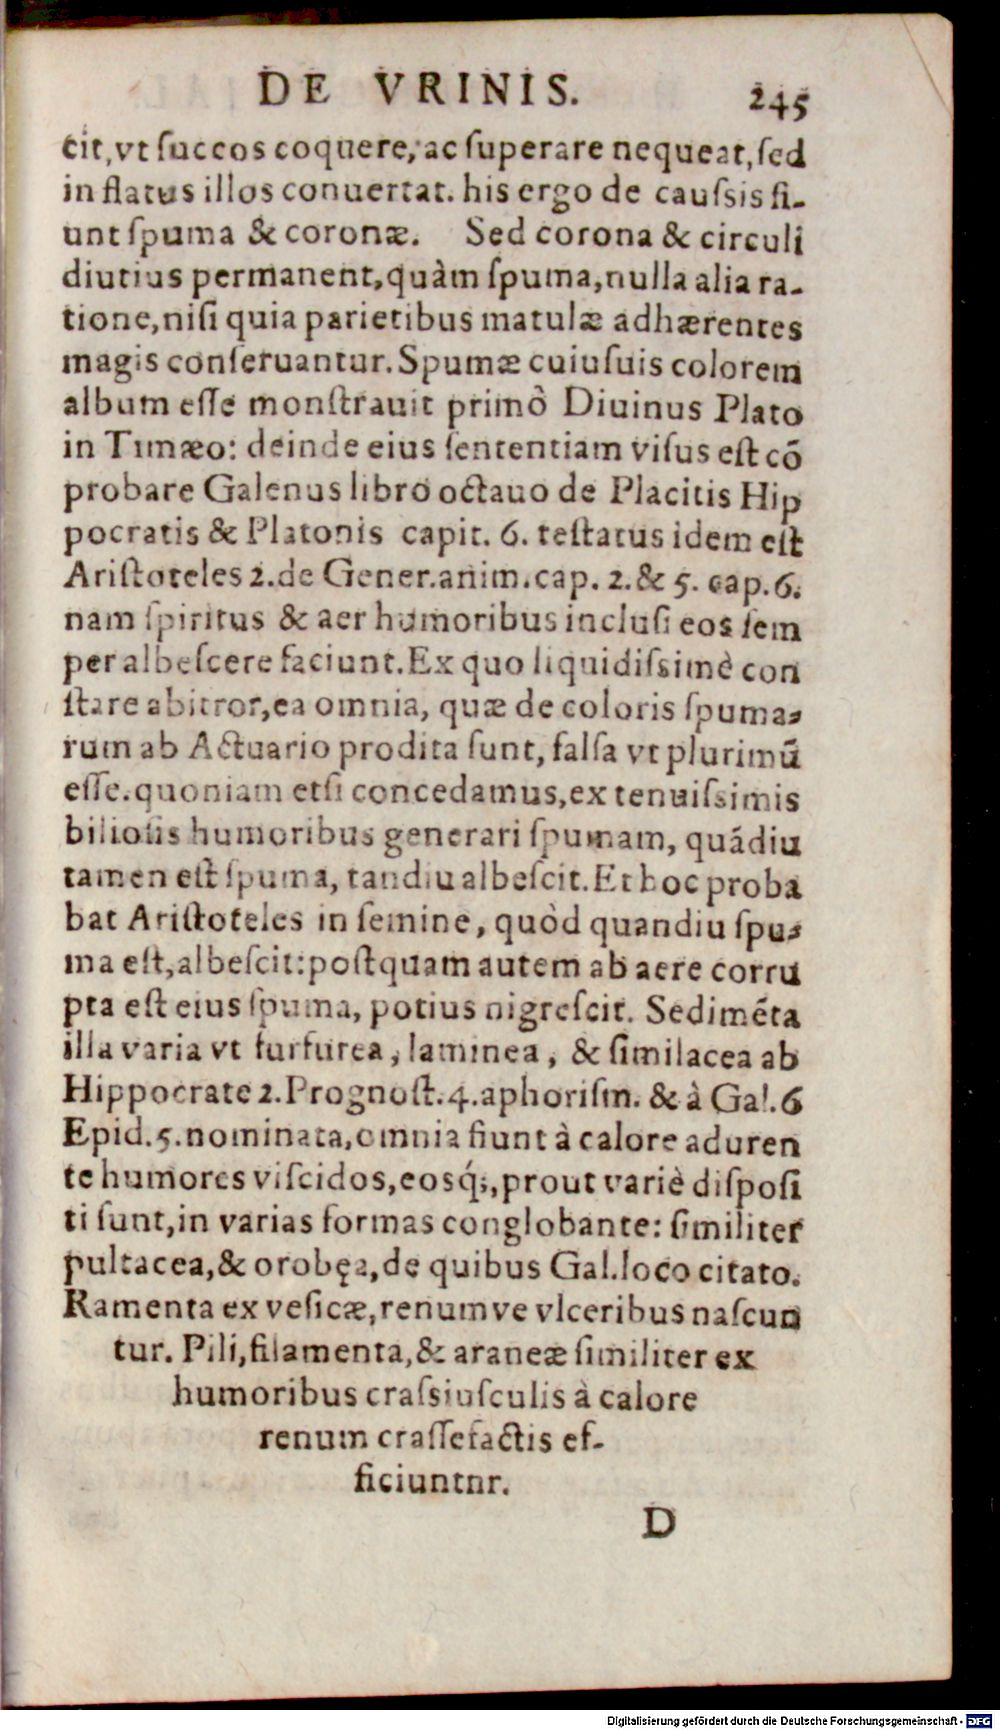 DE VRINIS. 245
cit,vt ſuccos coquere, ac ſuperare nequeat,ſed
in flatus illos conuertat. his ergo de cauſsis fi-
unt ſpuma & coronæ. Sed corona & circuli
diutius permanent,quàm ſpuma,nulla alia ra-
tione,niſi quia parietibus matulæ adhærentes
magis conſeruantur. Spumæ cuiuſuis colorem
album eſſe monſtrauit primò Diuinus Plato
in Timæo: deinde eius ſententiam viſus eſt cõ
probare Galenus libro octauo de Placitis Hip
pocratis & Platonis capit. 6. teſtatus idem eſt
Ariſtoteles 2.de Gener.anim.cap. 2.& 5. cap.6.
nam ſpiritus & aer humoribus incluſi eos ſem
per albeſcere faciunt.Ex quo liquidiſsimè con
ſtare abitror,ea omnia, quæ de coloris ſpuma-
rum ab Actuario prodita ſunt, falſa vt plurimũ
eſſe.quoniam etſi concedamus,ex tenuiſsimis
bilioſis humoribus generari ſpumam, quádiu
tamen eſt ſpuma, tandiu albeſcit.Et hoc proba
bat Ariſtoteles in ſemine, quòd quandiu ſpu-
ma eſt,albeſcit:poſtquam autem ab aere corru
pta eſt eius ſpuma, potius nigreſcit. Sedimẽta
illa varia vt furfurea, laminea, & ſimilacea ab
Hippocrate 2.Prognoſt.4.aphoriſm. & à Gal.6
Epid.5.nominata,omnia fiunt à calore aduren
te humores viſcidos,eosq́;,prout variè diſpoſi
ti ſunt,in varias formas conglobante: ſimiliter
pultacea,& orobęa,de quibus Gal.loco citato.
Ramenta ex veſicæ,renumve vlceribus naſcun
tur. Pili,filamenta,& araneæ ſimiliter ex
humoribus craſsiuſculis à calore
renum craſſefactis ef-
ficiuntnr.
D
Digitalisierung gefördert durch die Deutsche Forschungsgemeinschaft - DFG